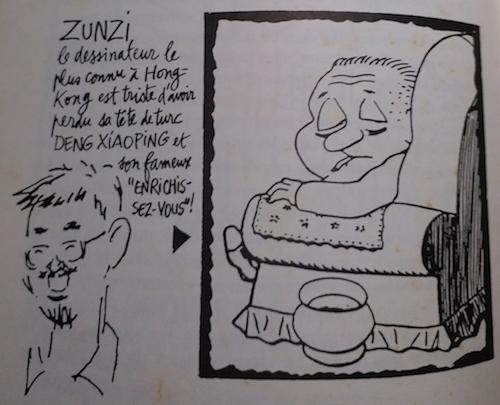 ZUNZI,
le dessinateur le
plus connu à Hong-
Kong est triste d'avoir
perdu sa tête de turc
DENG XIAOPING et
son fameux
"ENRICHIS-
SEZ-VOUS"!